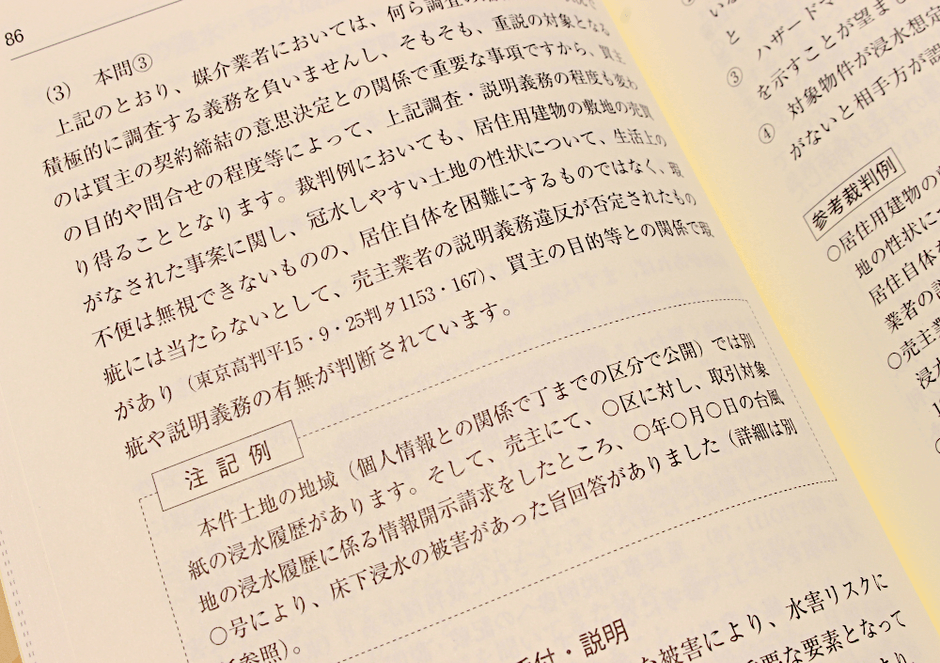 86
(3) 本問③
上記のとおり、媒介業者においては、何ら調査の
積極的に調査する義務を負いませんし、そもそも、重説の対象となる
のは買主の契約締結の意思決定との関係で重要な事項ですから、買主
の目的や問合せの程度等によって、上記調査・説明義務の程度も変わ
り得ることとなります。裁判例においても、居住用建物の敷地の売買
がなされた事案に関し、冠水しやすい土地の性状について、生活上の
不便は無視できないものの、居住自体を困難にするものではなく、瑕
疵には当たらないとして、売主業者の説明義務違反が否定されたもの
があり（東京高判平15・9・25判タ1153・167）、買主の目的等との関係で瑕
疵や説明義務の有無が判断されています。
注記例
本件土地の地域（個人情報との関係で丁までの区分で公開）では別
紙の浸水履歴があります。そして、売主にて、○区に対し、取引対象
地の浸水履歴に係る情報開示請求をしたところ、○年○月○日の台風
○号により、床下浸水の被害があった旨回答がありました（詳細は別
参照）。
付・説明
被害により、水害リスクに
重要な要素となって
いな
と
ハザードマ
を示すことが望ま
③ 対象物件が浸水想定
がないと相手方が誤
④
参考裁判例
○居住用建物の
地の性状に
居住自体
業者の説
○売主業
浸水